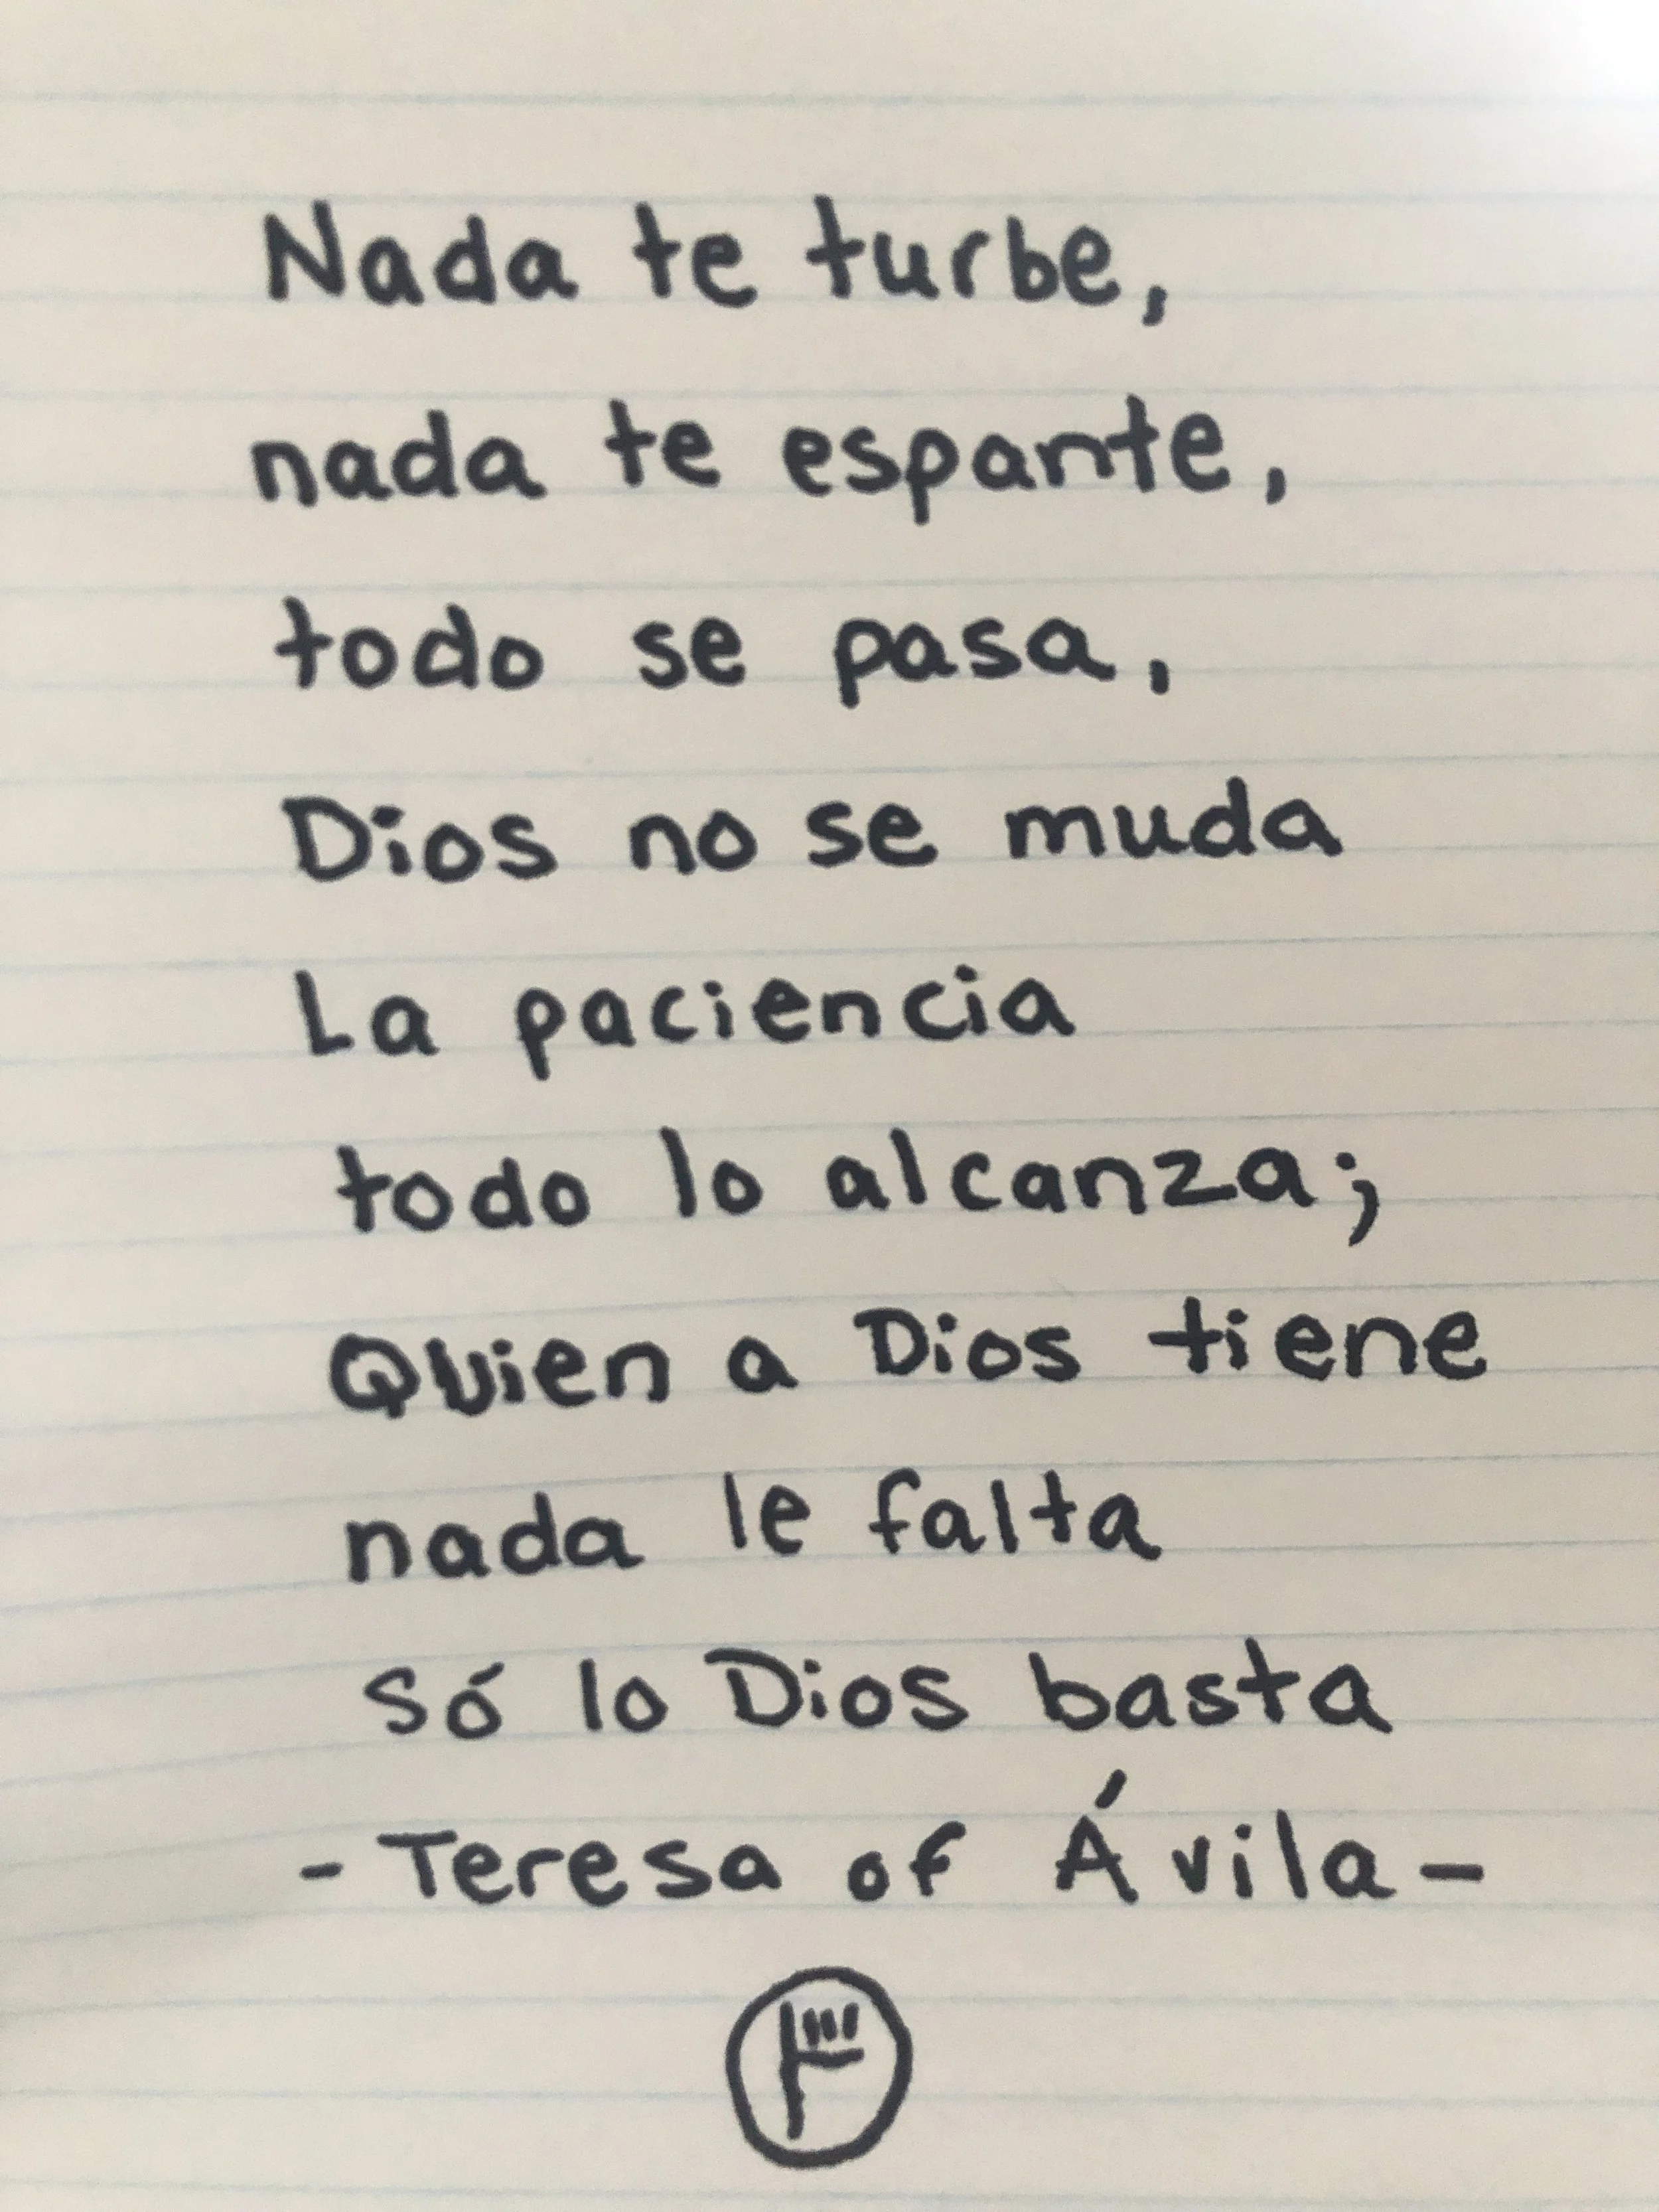 Nada te turbe,
nada te espante,
todo se pasa,
Dios no se muda
La paciencia
todo lo alcanza;
Quien a Dios tiene
nada le falta
só lo Dios basta
- Teresa of Ávila -